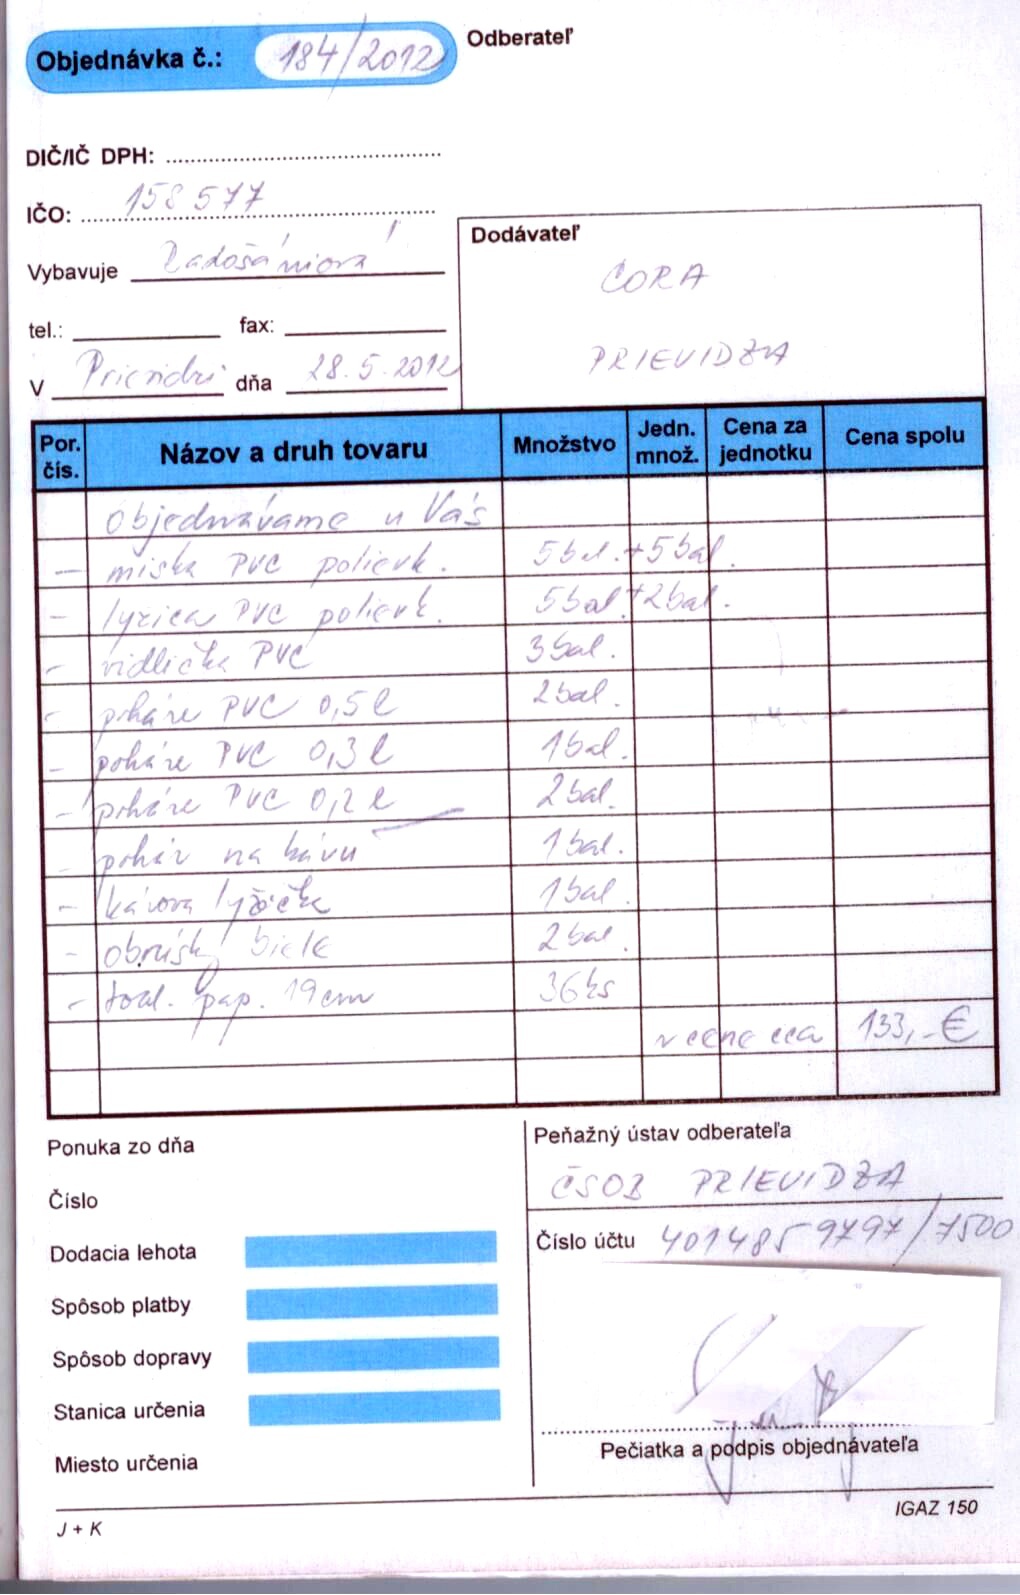 Objednávka č.: 184/2012
Odberateľ
DIČ/IČ DPH:
IČO: 158 577
Vybavuje
tel.: fax:
V Prievidzi dňa 28.5.2012
Dodávateľ
CORA
PRIEVIDZA
Por. čís. Názov a druh tovaru Množstvo Jedn. množ. Cena za jednotku Cena spolu
objednávame u Vás
– miska PVC polievk. 5bal. +5bal.
– lyzica PVC polievk. 5bal. +2bal.
– vidlička PVC 3bal.
– poháre PVC 0,5l 2bal.
– poháre PVC 0,3l 1bal.
– poháre PVC 0,2l 2bal.
– pohár na kávu 1bal.
– kávova lyžička 1bal.
– obrúsky biele 2bal.
– toal. pap. 19cm 36ks
v cene cca 133,-€
Ponuka zo dňa
Číslo
Dodacia lehota
Spôsob platby
Spôsob dopravy
Stanica určenia
Miesto určenia
Peňažný ústav odberateľa
ČSOB PRIEVIDZA
Číslo účtu 4014859797/7500
Pečiatka a podpis objednávateľa
J + K
IGAZ 150